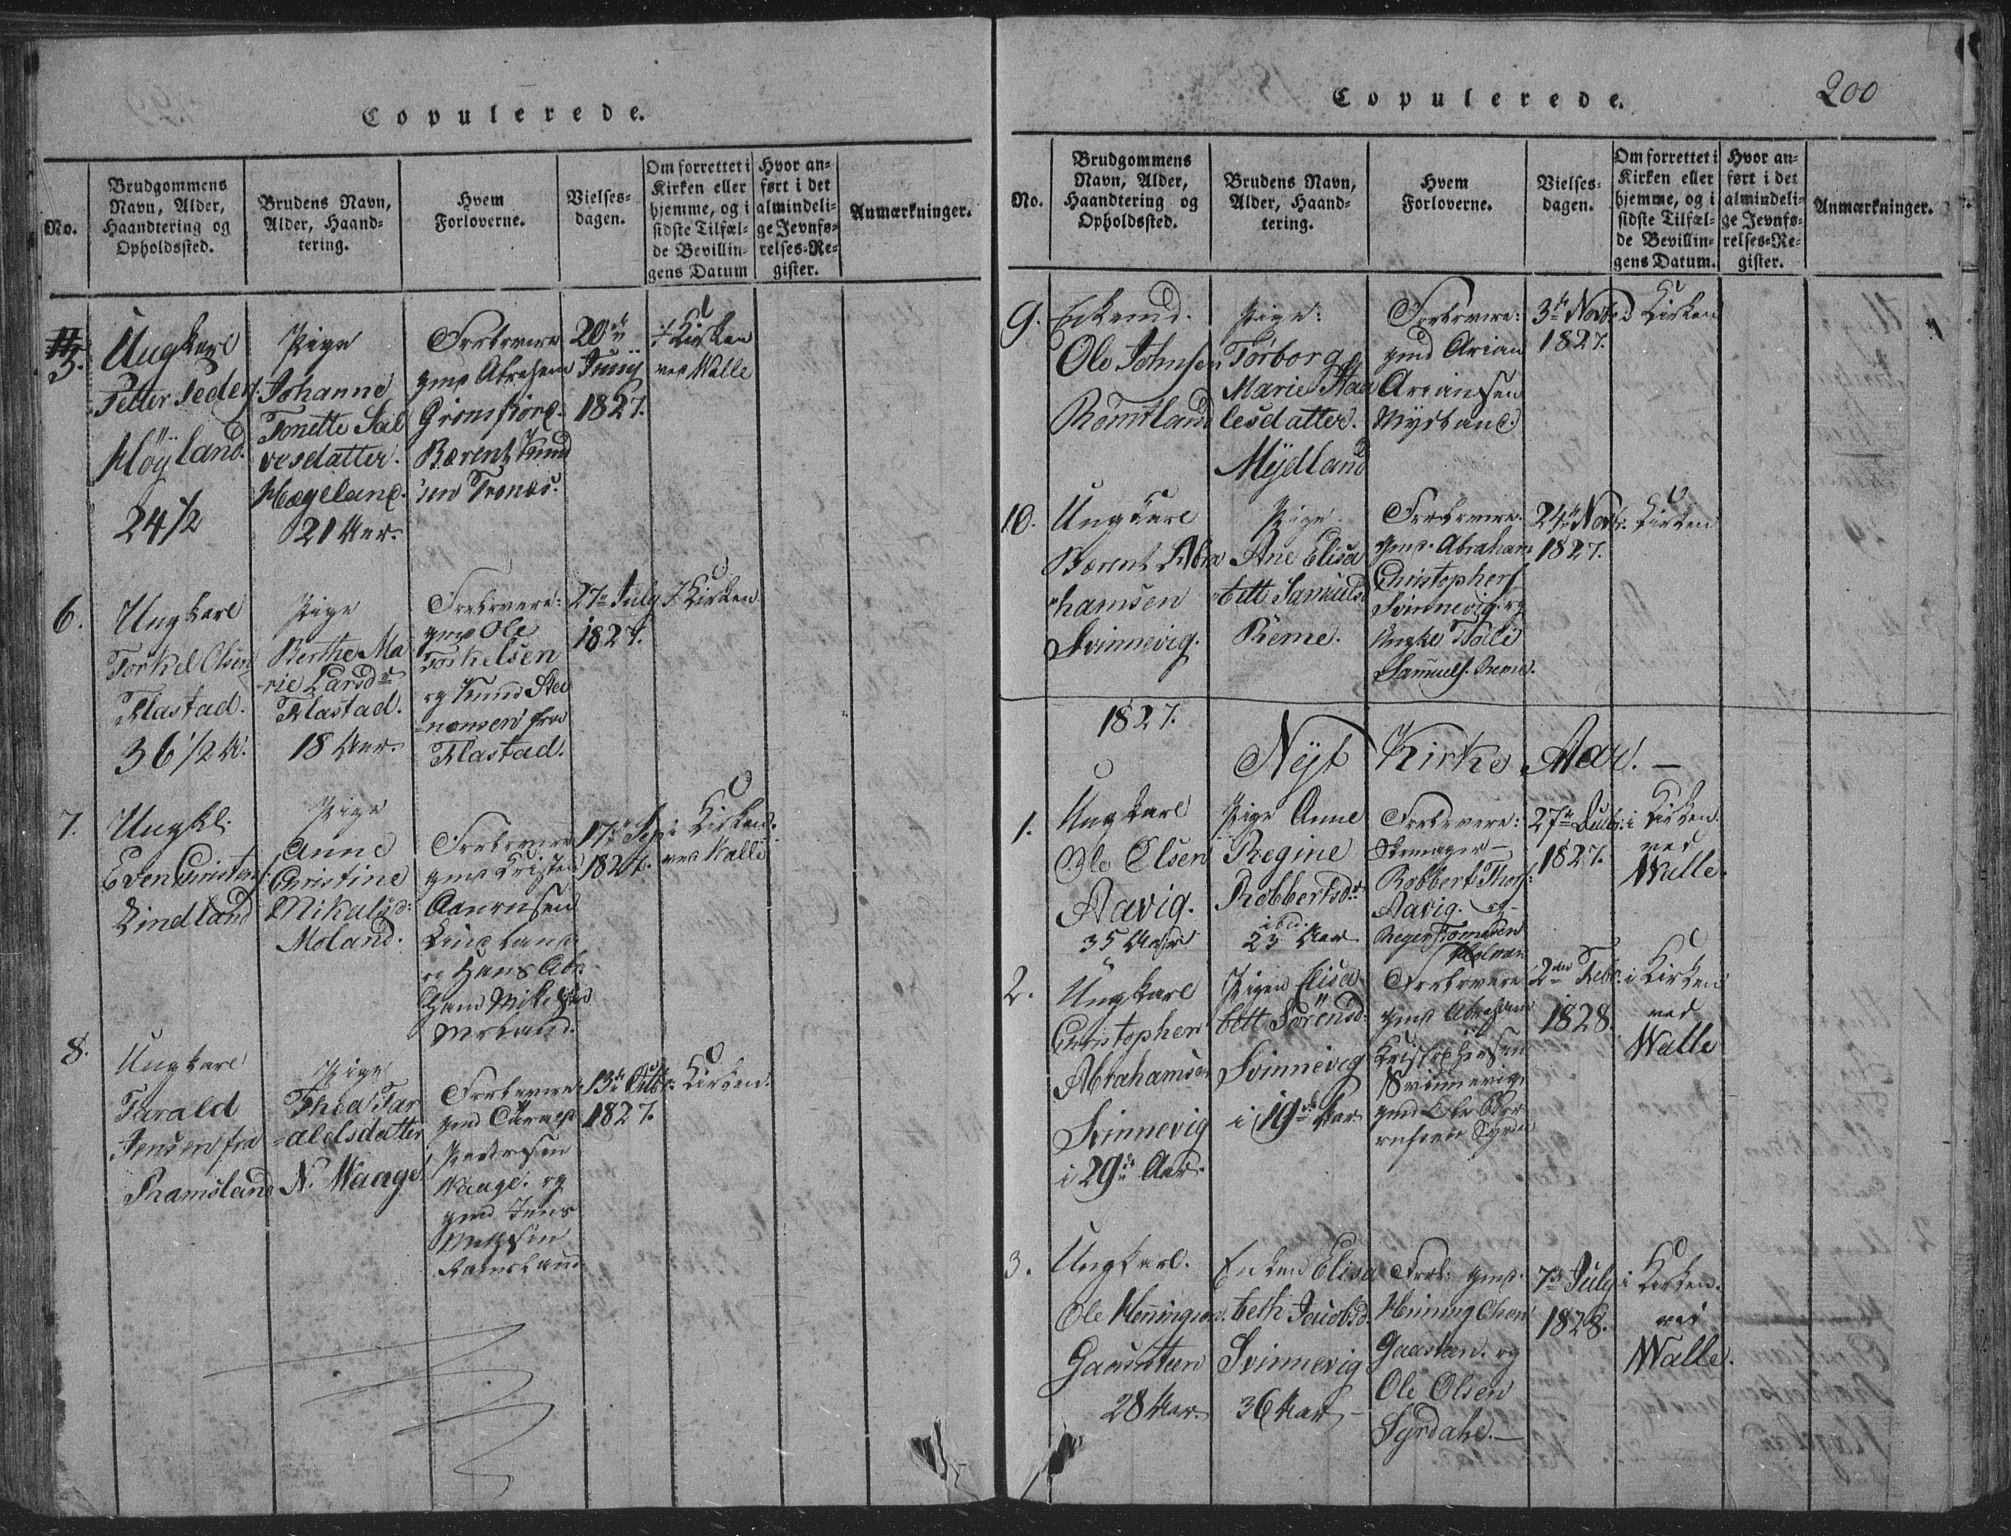 Copulerede.
No.
Brudgommens
Navn, Alder,
Haandtering og
Opholdssted.
Brudens Navn,
Alder, Haand-
tering.
Hvem
Forloverne.
Vielses-
dagen.
Om forrettet i
Kirken eller
hjemme, og i
sidste Tilfæl-
de Bevillin-
gens Datum
Hvor an-
ført i det
almindeli-
ge Jevnfø-
relses-Re-
gister.
Anmærkninger.
5.
Ungkarl
Peder
Höÿland.
24 1/2
Pige
Johanne
Tonette Sal
vesdatter.
Hægeland.
21 Aar.
Forlovere
Bærent Knud
sen Tronæs.
20de
Junÿ
1827.
i Kirken
ved Walle
6.
Ungkarl
Torkel Olsen
Flastad.
36 1/2 A.
Pige
Berthe Ma
-rie Larsdr
Flastad.
18 Aar.
Forlovere:
gmd Ole
Torkelsen
og Knud
fra
Flastad.
27de July
1827.
i Kirken
7.
Ungkl.
Even Christens.
Lindland
Pige
Anne
Christine
Mikalsd:
Moland.
Forlovere
gmd Kristen
Lindland
og Hans Abr.
ham
Moland.
17de Sep
1827.
i Kirken.
ved Valle
8.
Ungkarl
Tarald
Jensen fra
Ramsland
Pige
Thea Tar
-aldsdatter
N. Waage
Forlovere:
gmd
Pedersen
Waage. og
gmd Jens
Ramsland
13de Octbr.
1827.
Kirken.
Copulerede.
200
No.
Brudgommens
Navn, Alder,
Haandtering og
Opholdssted.
Brudens Navn,
Alder, Haand-
tering.
Hvem
Forloverne.
Vielses-
dagen.
Om forrettet i
Kirken eller
hjemme, og i
sidste Tilfæl-
de Bevillin-
gens Datum.
Hvor an-
ført i det
almindeli-
ge Jevnfø-
relses-Re-
gister.
Anmærkninger.
9.
Enkemd.
Ole Johnsen
Romtland
Pige:
Torborg
Marie Staa
lesdatter.
Mÿdland
Forlovere:
gmd Arian
Ariansen
Mydland.
3de Novbr
1827.
i Kirken
10.
Ungkarl
Bærent Abra
hamsen
Svinnevig.
Pige
Ane Elisa
bett Samuels.
Reme.
Forlovere.
gmd. Abraham
Christophers.
Svinnevig. og
Samuels. Reme.
24de Novbr.
1827.
Kirken
1827.
Nÿt Kirke Aar. —
1.
Ungkarl
Ole Olsen
Aavig.
35 Aar
Pige Anne
Regine
Robbertsdr
ibd:
23 Aar
Forlovere:
Robbert Thors.
Aavig. og
27de
1827.
i Kirken
ved
Walle.
2.
Ungkarl
Christopher
Abrahamsen
Svinnevig
i 29de Aar.
Pigen Elisa
bett Sörensd.
Svinnevig
i 19de Aar
Forlovere
gmd Abraham
Kristophersen
Svinnevig.
gmd Ole
2den Febr.
1828.
i Kirken
ved
Walle
3.
Ungkarl.
Ole Henningsen.
28 Aar.
Enken Elisa
beth Jacobsd.
Svinnevig
36 Aar
Forl: gmd.
Henning
og
Ole Olsen
Syrdahl. —
7de July
1828.
i Kirken.
ved
Walle.